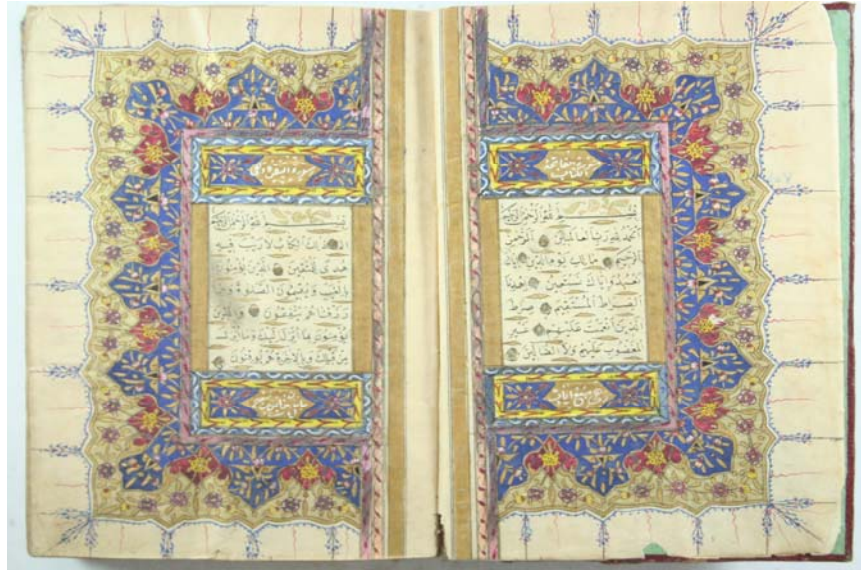 سورة فاتحة الكتاب
بسم الله الرحمن الرحيم
الحمد لله رب العالمين الرحمن
الرحيم مالك يوم الدين إياك
نعبد وإياك نستعين اهدنا
الصراط المستقيم صراط
الذين أنعمت عليهم غير
المغضوب عليهم ولا الضالين
سورة البقرة
بسم الله الرحمن الرحيم
الم ذلك الكتاب لا ريب فيه
هدى للمتقين الذين يؤمنون
بالغيب ويقيمون الصلوة ومما
رزقناهم ينفقون والذين
يؤمنون بما أنزل إليك وما أنزل
من قبلك وبالآخرة هم يوقنون